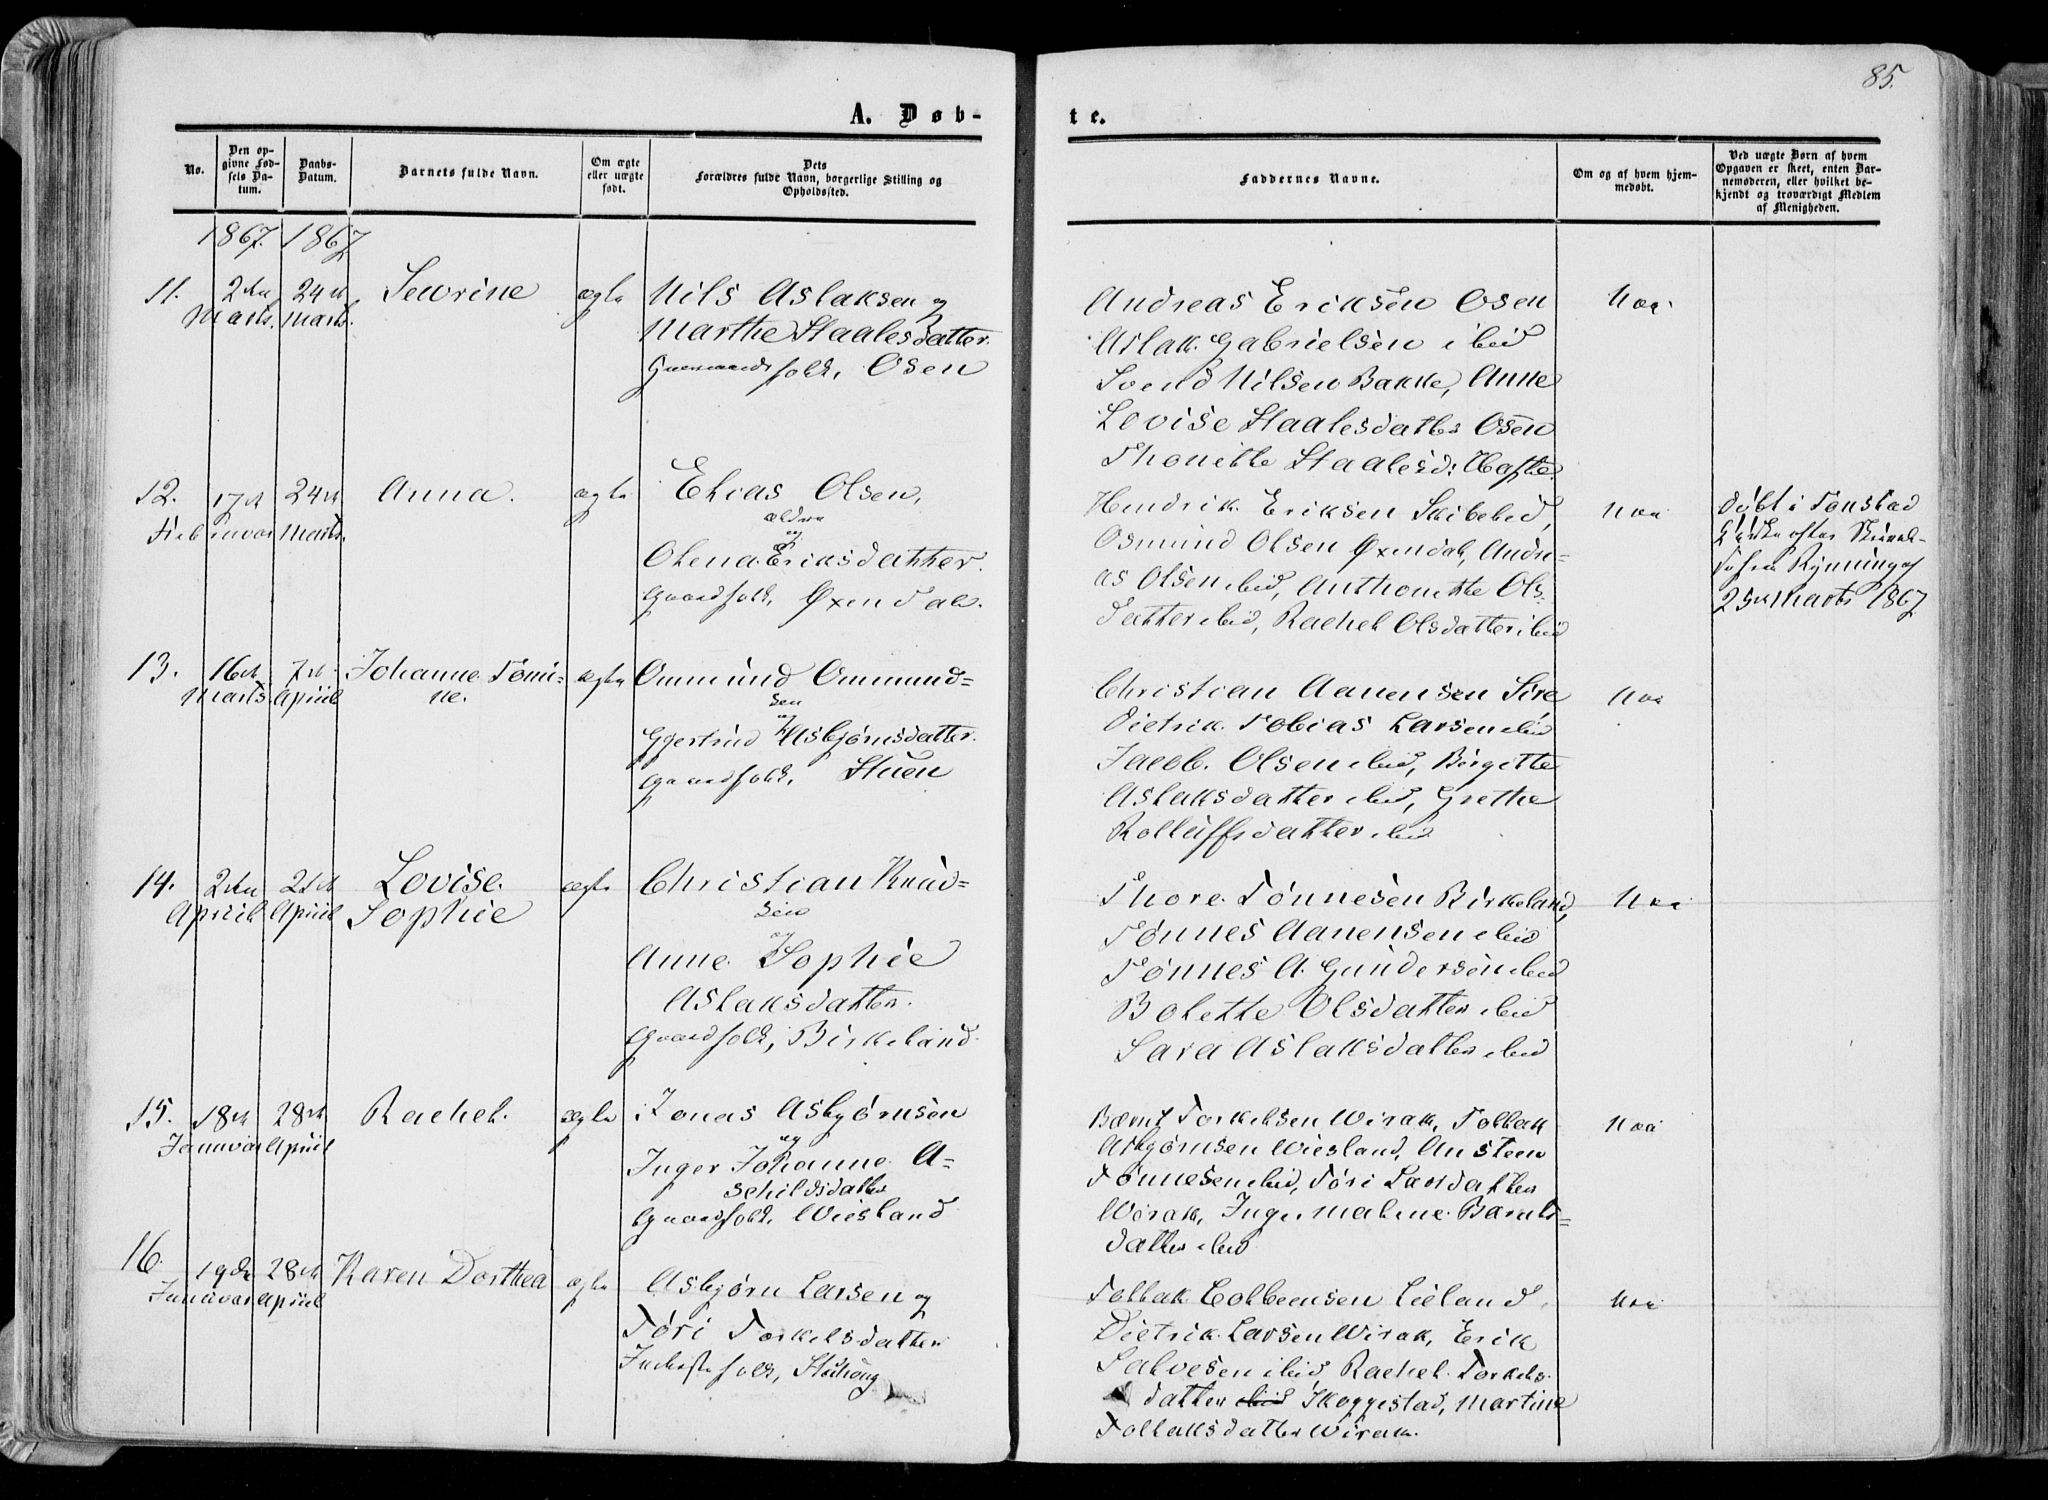 85.
A. Døb-
te.
No.
Den op-
givne Fød-
sels Da-
tum.
Daabs-
Datum.
Barnets fulde Navn.
Om ægte
eller uægte
født.
Dets
Forældres fulde Navn, borgerlige Stilling og
Opholdssted.
Faddernes Navne.
Om og af hvem hjem-
medøbt.
Ved uægte Børn af hvem
Opgaven er skeet, enten Bar-
nemoderen, eller hvilket be-
kjendt og troværdigt Medlem
af Menigheden.
1867. 1867
11.
2den
Marts.
24de
Marts.
Sewrine
ægte
Nils Aslaksen og
Marthe Staalesdatter.
folk, Osen
Andreas Eriksen Osen
Aslak Gabrielsen ibid
Svend Nilsen Bakke, Anne
Lovise Staalesdatter Osen
Thonette Staalesd:
12.
17de
Februar
24de
Marts.
Anna.
ægte
Elias Olsen,
ældre
og
Olena Eriksdatter.
Gaardfolk, Øxendal.
Hendrik Eriksen
Osmund Olsen Øxendal, Andre-
as Olsen ibid, Anthonette Ols-
datter ibid, Rachel Olsdatter ibid
døbt i Tonstad
Kirke efter
25de Marts 1867
13.
16de
Marts.
7de
April
Johanne Tomi-
ne.
ægte
Ommund Ommund-
sen
og
Gjertrud Asbjørnsdatter.
Gaardfolk, Stuen
Christian Aanensen Sire
Dietrik Tobias Larsen ibid
Jacob Olsen ibid, Birgitte
Aslaksdatter ibid, Grethe
Rolluffsdatter ibid
14.
2den
April
21de
April
Lovise
Sophie
ægte
Christian Knud-
sen
og
Anne Sophie
Aslaksdatter.
Gaardfolk, Birkeland.
Thore Tønnesen Birkeland,
Tønnes Aanensen ibid
Tønnes A. Gundersen ibid
Bolette Olsdatter ibid
Sara Aslaksdatter ibid
15.
18de
Januar
28de
April
Rachel.
ægte
Jonas Asbjørnsen
og
Inger Johanne A-
schildsdatter
Gaardfolk, Wiesland
Bærnt Torkelsen Wirak, Tollak
Asbjørnsen Wiesland, Ansteen
Tønnesen ibid, Tøri Larsdatter
Wirak, Inger Malene Bærnts-
datter ibid
16.
19de
Januar
28de
April
Karen Dorthea
ægte
Asbjørn Larsen og
Tøri Torkelsdatter
folk,
Tollak Colbeensen Lieland,
Dietrik Larsen Wirak, Erik
Salvesen ibid, Rachel Torkels-
datter ibid Skoggestad, Martine
Tollaksdatter Wirak.